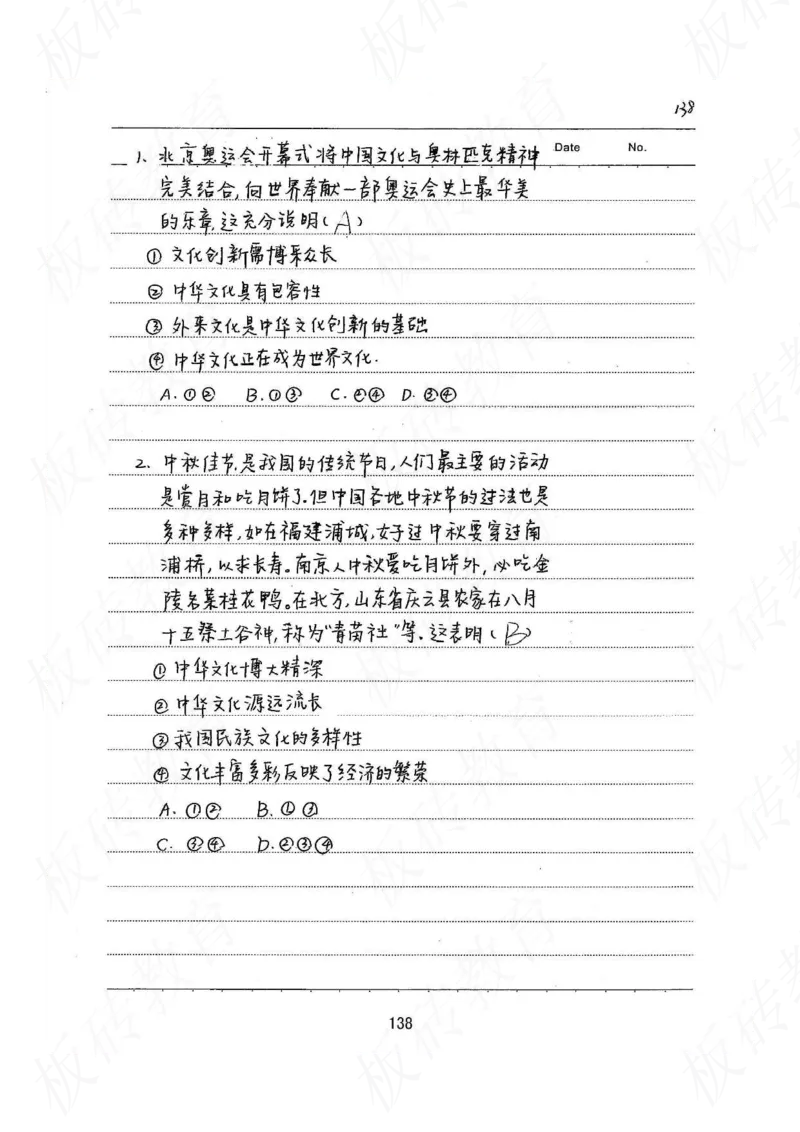 138
Date No.
1、北京奥运会开幕式将中国文化与奥林匹克精神
完美结合,向世界奉献一部奥运会史上最华美
的乐章,这充分说明(A)
① 文化创新需博采众长
② 中华文化具有包容性
③ 外来文化是中华文化创新的基础
④ 中华文化正在成为世界文化.
A.①② B.①③ C.②④ D.③④
2、中秋佳节,是我国的传统节日,人们最主要的活动
是赏月和吃月饼了.但中国各地中秋节的过法也是
多种多样,如在福建浦城,女子过中秋要穿过南
浦桥,以求长寿。南京人中秋爱吃月饼外,必吃金
陵名菜桂花鸭。在北方,山东省庆云县农家在八月
十五祭土谷神,称为"青苗社"等.这表明(B)
① 中华文化博大精深
② 中华文化源远流长
③ 我国民族文化的多样性
④ 文化丰富多彩反映了经济的繁荣
A.①② B.①③
C.③④ D.②③④
138
板砖教育